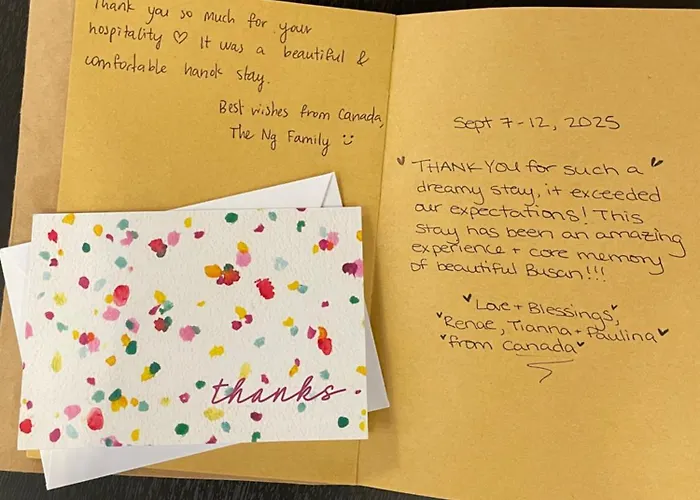 Thank you so much for your
hospitality ♡ It was a beautiful &
comfortable hanok stay.
Best wishes from Canada,
The Ng Family
thanks.
Sept 7-12, 2025
THANK YOU for such a
dreamy stay, it exceeded
our expectations! This
stay has been an amazing
experience + core memory
of beautiful Busan!!!
Love + Blessings,
Renae, Tianna + Paulina
from Canada